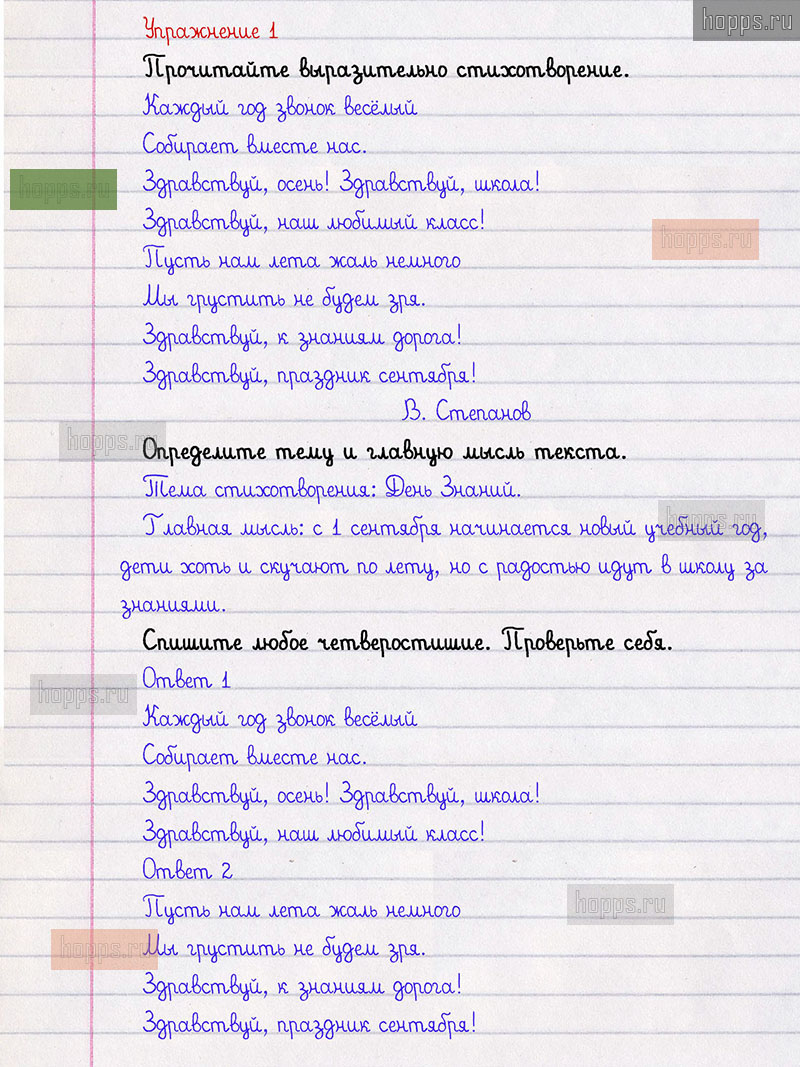 hopps.ru
Упражнение 1
Прочитайте выразительно стихотворение.
Каждый год звонок весёлый
Собирает вместе нас.
hopps.ru
Здравствуй, осень! Здравствуй, школа!
Здравствуй, наш любимый класс!
hopps.ru
Пусть нам лета жаль немного
Мы грустить не будем зря.
Здравствуй, к знаниям дорога!
Здравствуй, праздник сентября!
В. Степанов
hopps.ru
Определите тему и главную мысль текста.
Тема стихотворения: День Знаний.
hopps.ru
Главная мысль: с 1 сентября начинается новый учебный год,
дети хоть и скучают по лету, но с радостью идут в школу за
знаниями.
Спишите любое четверостишие. Проверьте себя.
Ответ 1
hopps.ru
Каждый год звонок весёлый
Собирает вместе нас.
Здравствуй, осень! Здравствуй, школа!
Здравствуй, наш любимый класс!
Ответ 2
hopps.ru
Пусть нам лета жаль немного
hopps.ru
Мы грустить не будем зря.
Здравствуй, к знаниям дорога!
Здравствуй, праздник сентября!